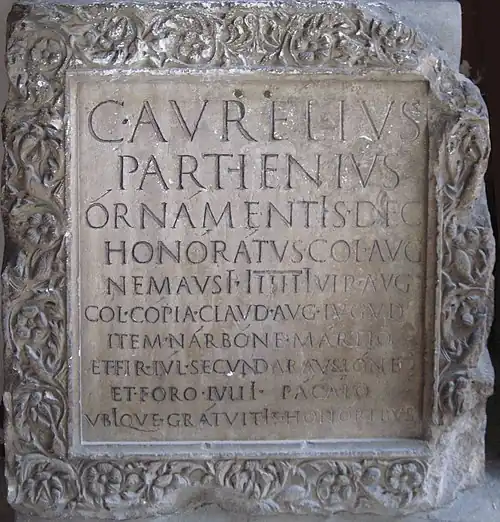 C·AVRELIVS
PARTHENIVS
ÓRNAMENTIS·DEC
HONORÁTVS COL·AVG
NEMAVSI·IIIIIIVIR·AVG
COL·COPIA·CLAVD·AVG·LVGVD
ITEM·NÁRBÓNE·MÁRTIO
ET·FIR·IVL·SECVND·ARAVSIÓNE
ET·FORO·IVLII·PÁCÁTO
VBIQVE·GRÁTVITIS·HONORIBVS